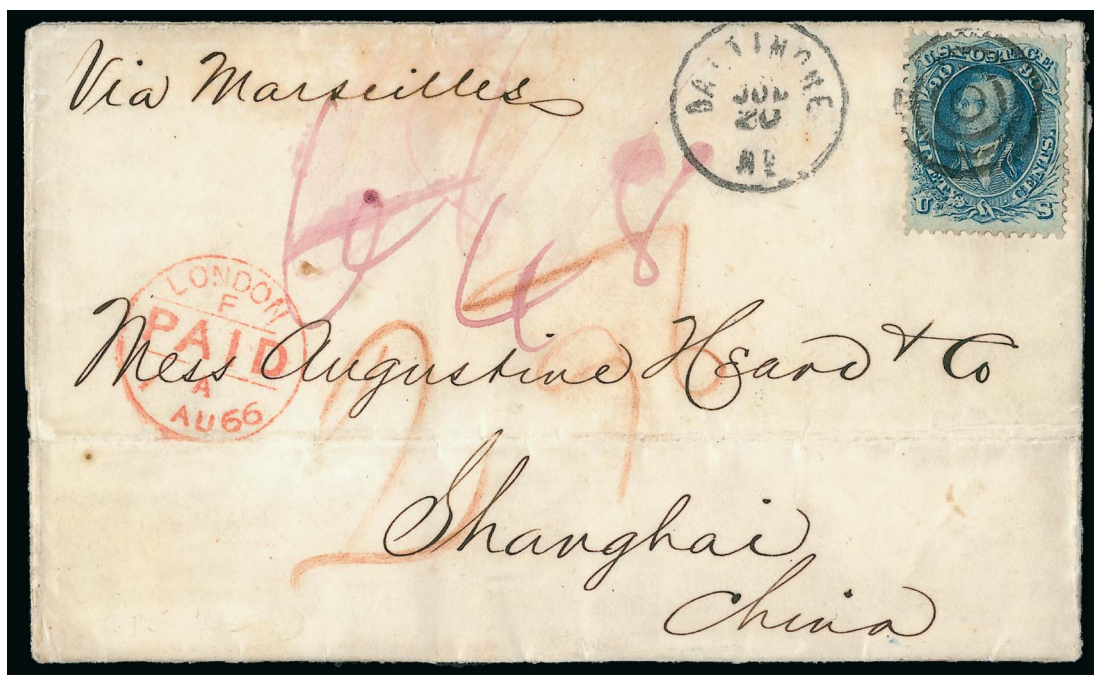 Via Marseilles
BALTIMORE
JUL
20
MD
90 U.S. POSTAGE 90
NINETY CENTS
U S
48
LONDON
F
PAID
A
AU 66
Mess Augustine Heard & Co
Shanghai
China